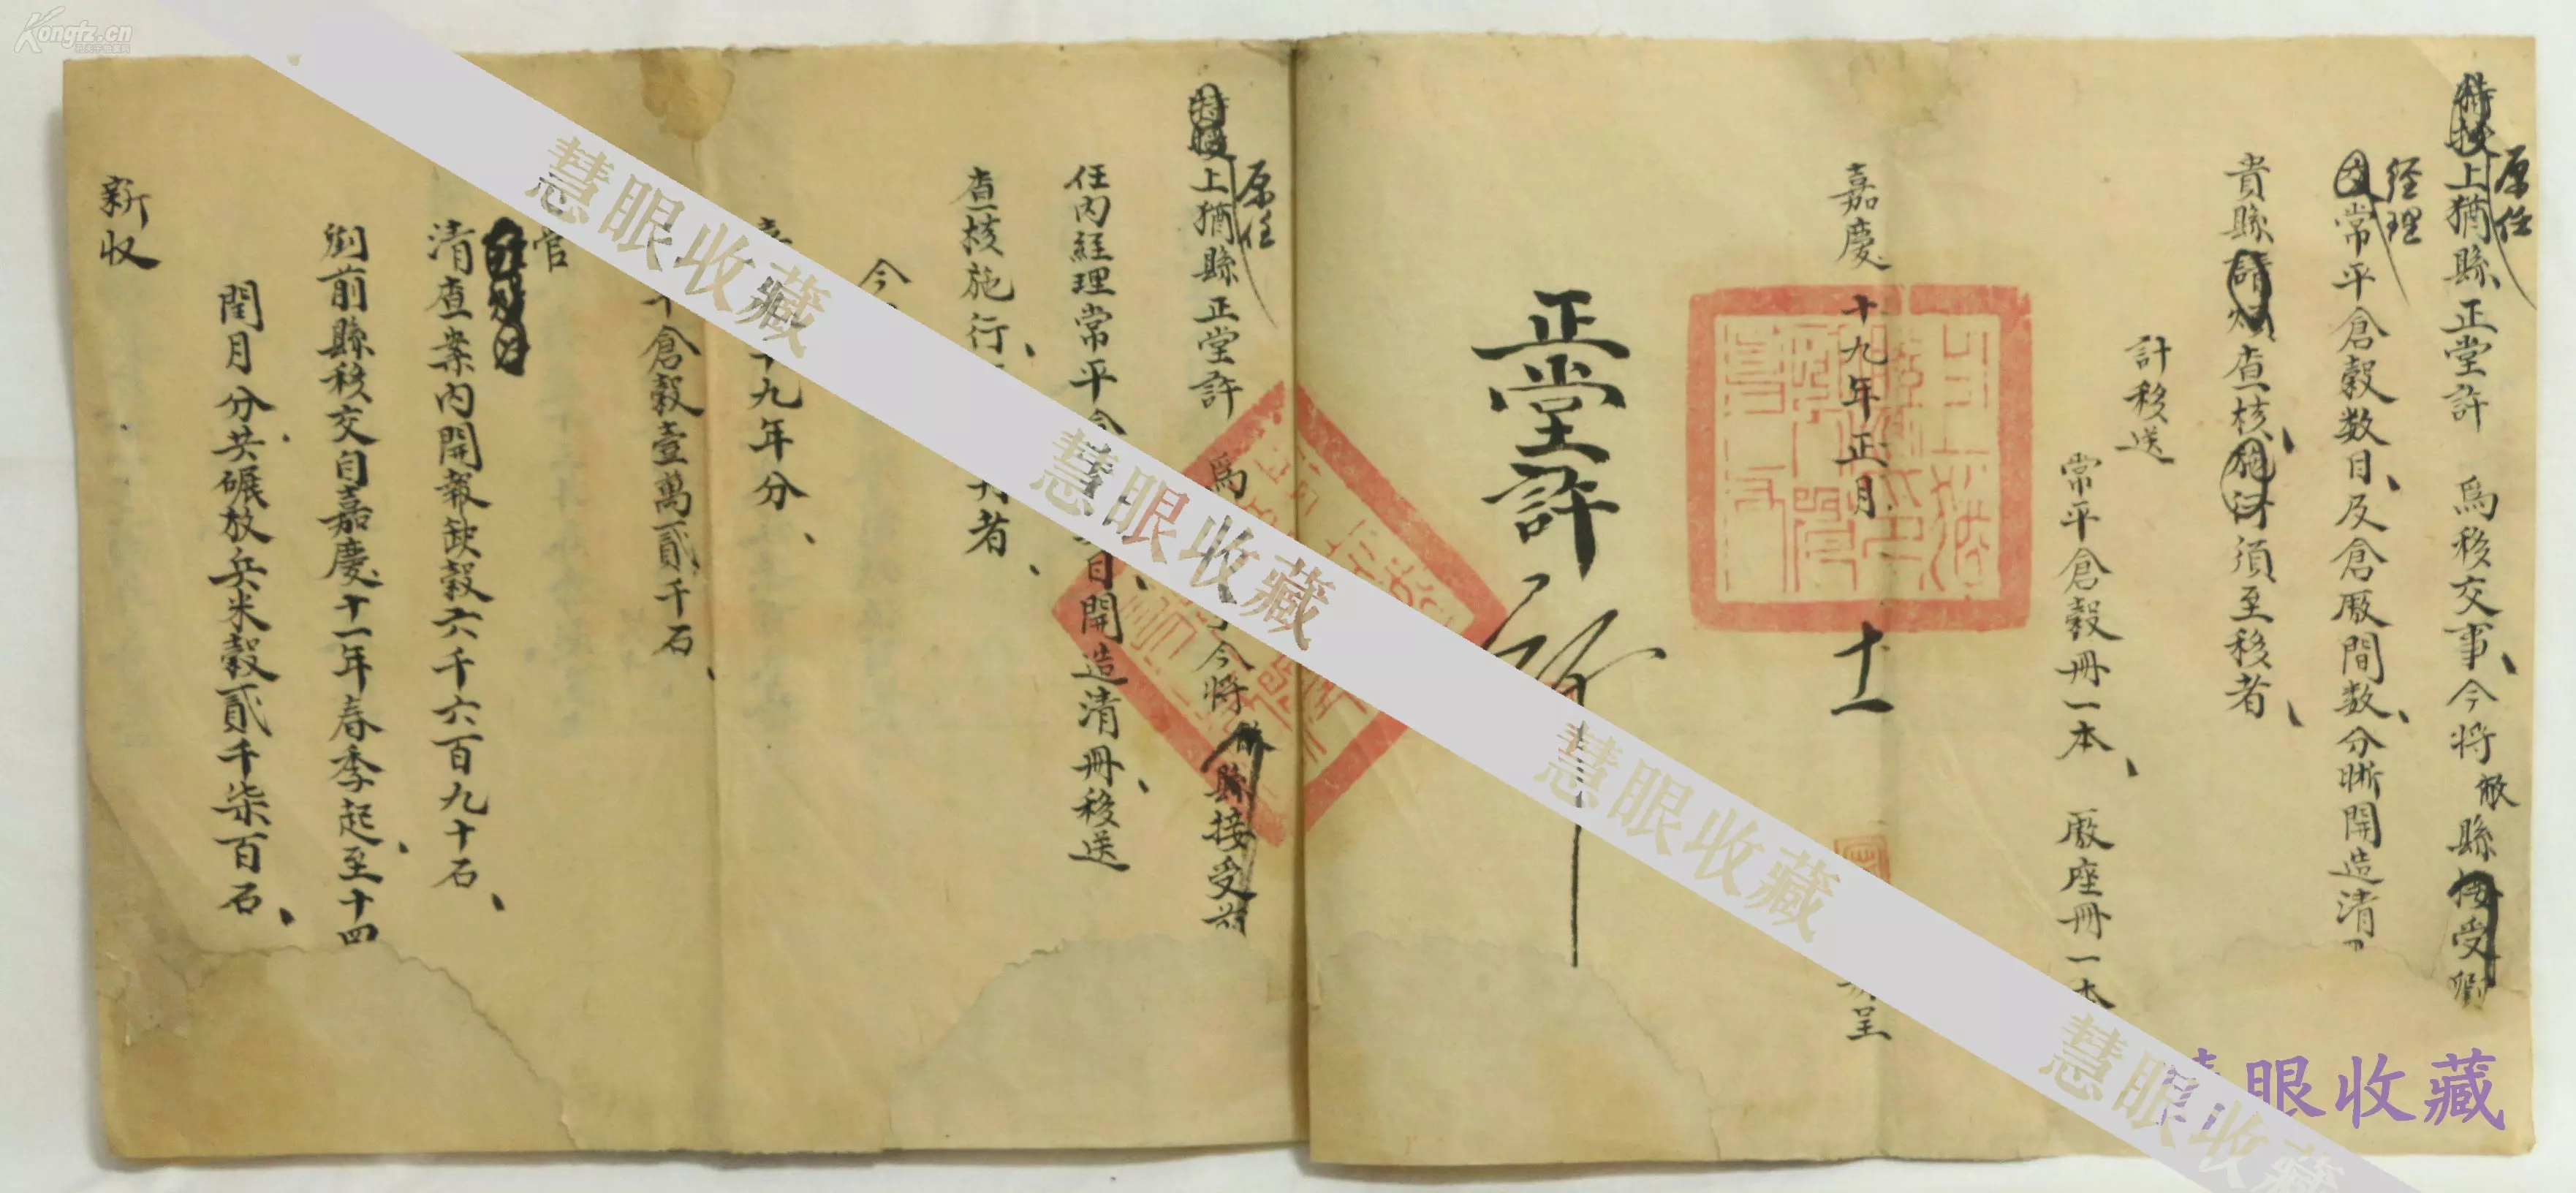 特授上猶縣正堂許 爲移交事、今將敝縣接受卸
原任
經理
常平倉穀数目、及倉厫間数、分晰開造清
貴縣請煩查核、施行須至移者、
計移送
常平倉穀冊一本、 厫座冊一本
嘉慶十九年正月 十一
呈
正堂許
特授上猶縣正堂許 爲 今將 縣接受前
原任
任内經理常平倉 目、開造清冊、移送
查核施行、 者、
今
九年分、
倉穀壹萬貳千石、
管
清查案内開報缺穀六千六百九十石、
卸前縣移交自嘉慶十一年春季起、至十四
閏月分共碾放兵米穀貳千柒百石、
新収
慧眼收藏
慧眼收藏
慧眼收藏
慧眼收藏
眼收藏
Kongfz.cn